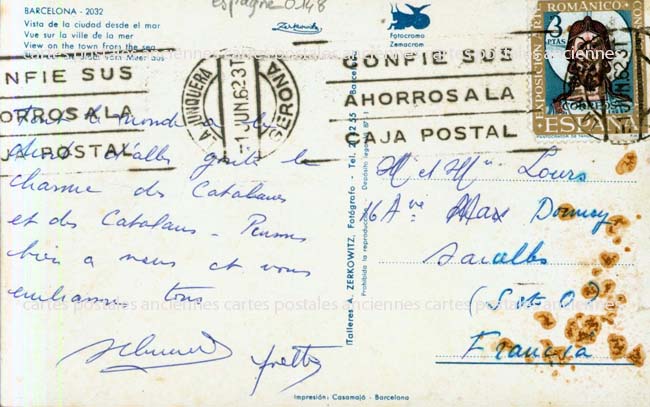 espagne 0148
BARCELONA - 2032
Vista de la ciudad desde el mar
Vue sur la ville de la mer
View on the town from the sea
vom Meer aus
Zerkowitz
Fotocromo
Zemacrom
CONFIE SUS
AHORROS A LA
CAJA POSTAL
LA JUNQUERA
1 JUN 62 3
GERONA
CONFIE SUS
AHORROS A LA
CAJA POSTAL
EXPOSICION
ROMÁNICO
3
PTAS
CORREOS
ESPAÑA
1 JUN 62 3
Tout le monde a
goûte le
charme des Catalanes
et des Catalans - Pensons
bien a vous et vous
embrassons tous
Yvette
(Talleres A. ZERKOWITZ, Fotógrafo - Tel. 21 22 55 - Barcelona
Prohibida la reproducción
Depósito legal
M. et Mme
16 Ave Max Dormoy
(S et O)
Francia
Impresión: Casamajó - Barcelona
cartes postales anciennes cartes postales anciennes cartes postales anciennes
cartes postales anciennes cartes postales anciennes cartes postales anciennes